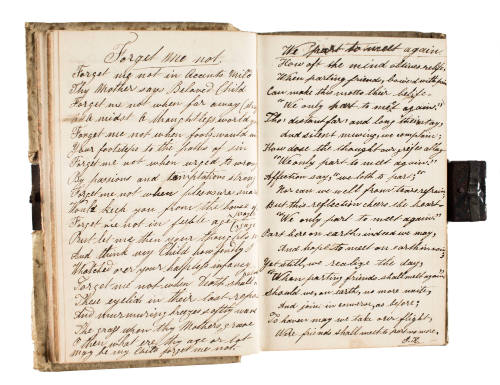 Forget me not.
Forget me not in accents mild
Thy Mother says Beloved Child
Forget me not when far away
midst a thoughtless world
Forget me not when fools would
Your footsteps to the paths of sin
Forget me not when urged to wrong
By passions and temptations strong
Forget me not when pleasures
Would keep you from the house of
Forget me not in feeble age
But let me then your thoughts
And think my Child how fondly
Watched over your helpless infancy
Forget me not when Death shall
These eyelids in their last repose
And murmuring breezes softly wave
The grass upon thy Mothers grave
O then what ere thy age or lot
May be my Child forget me not.
We part to meet again
How oft the mind obtains relief
When parting friends, bowed with
Can make this motto their belief
"We only part to meet again."
Tho' distant far and long their stay,
And silent musing, we complain;
How does the thought our grief allay
"We only part to meet again."
Affection say, "we loth to part;"
Nor can we well from tears refrain
But this reflection cheers the heart
"We only part to meet again."
Part here on earth, indeed we may,
And hope to meet on earth
Yet still, we realize the day,
"When parting friends shall meet again"
Should we, on earth, no more unite,
And join in converse, as before;
To heaven may we take our flight,
Where friends shall meet to part no more.